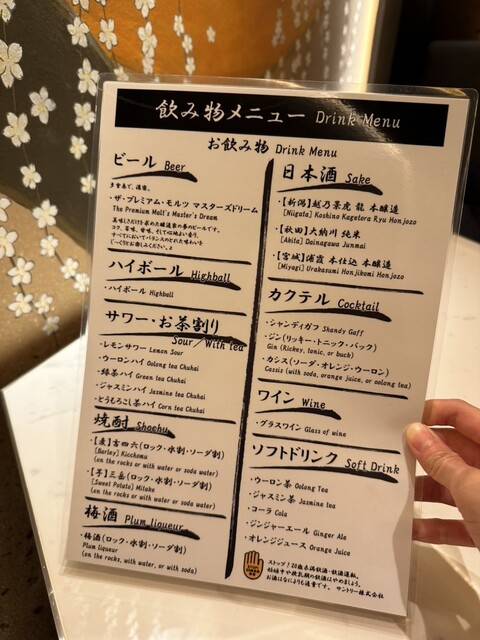 飲み物メニュー Drink Menu
お飲み物 Drink Menu
ビール Beer
・ザ・プレミアム・モルツ マスターズドリーム
The Premium Malt's Master's Dream
ハイボール Highball
・ハイボール Highball
サワー・お茶割り
Sour／With tea
・レモンサワー Lemon Sour
・ウーロンハイ Oolong tea Chuhai
・緑茶ハイ Green tea Chuhai
・ジャスミンハイ Jasmine tea Chuhai
・とうもろこし茶ハイ Corn tea Chuhai
焼酎 Shochu
・【麦】吉四六(ロック・水割・ソーダ割)
[Barley] Kicchomu
(on the rocks or with water or soda water)
・【芋】三岳(ロック・水割・ソーダ割)
[Sweet Potato] Mitake
(on the rocks or with water or soda water)
梅酒 Plum liqueur
・梅酒(ロック・水割・ソーダ割)
Plum liqueur
(on the rocks, with water, or with soda)
日本酒 Sake
・【新潟】越乃景虎 龍 本醸造
[Niigata] Koshino Kagetora Ryu Honjozo
・【秋田】大納川 純米
[Akita] Dainagawa Junmai
・【宮城】浦霞 本仕込 本醸造
[Miyagi] Urakasumi Honjikomi Honjozo
カクテル Cocktail
・シャンディガフ Shandy Gaff
・ジン(リッキー・トニック・バック)
Gin (Rickey, tonic, or buck)
・カシス(ソーダ・オレンジ・ウーロン)
Cassis (with soda, orange juice, or oolong tea)
ワイン Wine
・グラスワイン Glass of wine
ソフトドリンク Soft Drink
・ウーロン茶 Oolong Tea
・ジャスミン茶 Jasmine tea
・コーラ Cola
・ジンジャーエール Ginger Ale
・オレンジジュース Orange Juice
ストップ！20歳未満飲酒・飲酒運転。
妊娠中や授乳期の飲酒はやめましょう。
お酒はなによりも適量です。 サントリー株式会社